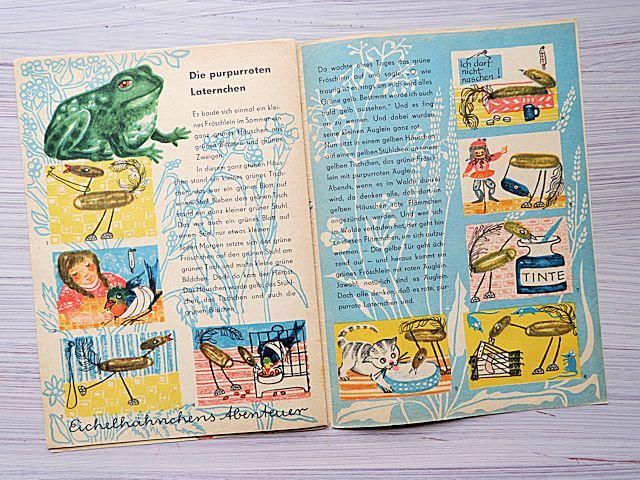 Die purpurroten
Laternchen
Es baute sich einmal ein klei-
nes Fröschlein im Sommer ein
ganz grünes Häuschen aus
grünen Blättern und grünen
Zweigen.
In diesem ganz grünen Häus-
chen stand ein kleines grünes Tisch-
chen, das war ein grünes Blatt auf
einem Stiel. Neben dem grünen Tisch
stand ein ganz kleiner grüner Stuhl.
Das war auch ein grünes Blatt auf
einem Stiel, nur etwas kleiner.
Jeden Morgen setzte sich das grüne
Fröschlein auf den grünen Stuhl am
grünen Tisch und malte kleine grüne
Bildchen. Doch da kam der Herbst.
Das Häuschen wurde gelb, das Stühl-
chen, das Tischchen und auch die
grünen Bildchen.
Eichelhähnchens Abenteuer
Da wachte eines Tages das grüne
Fröschlein auf und sagte: „O wie
traurig ist es, rings um mich wird alles
Grüne gelb. Bestimmt werde ich auch
bald gelb aussehen.“ Und es fing
an zu weinen. Und dabei wurden
seine kleinen Äuglein ganz rot.
Nun sitzt in einem gelben Häuschen
auf einem gelben Stühlchen an einem
gelben Tischchen, das grüne Fröschlein
mit purpurroten Äuglein.
Abends, wenn es im Walde dunkel
wird, da denken alle, daß dort im
gelben Häuschen rote Flämmchen
angezündet werden. Und wer sich
im Walde verlaufen hat, der geht hin
zu diesen Flämmchen, um sich aufzu-
wärmen. – Die gelbe Tür geht öch-
zend auf – und heraus kommt ein
grünes Fröschlein mit roten Äuglein.
Jawohl, natürlich sind es Äuglein.
Doch alle denken, daß es rote, pur-
purrote Laternchen sind.
Ich darf
nicht
naschen!
TINTE